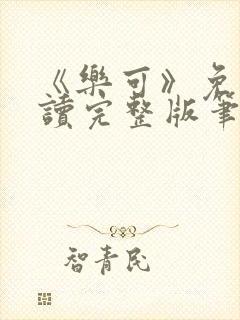 《樂可》免
讀完整版筆
智青民